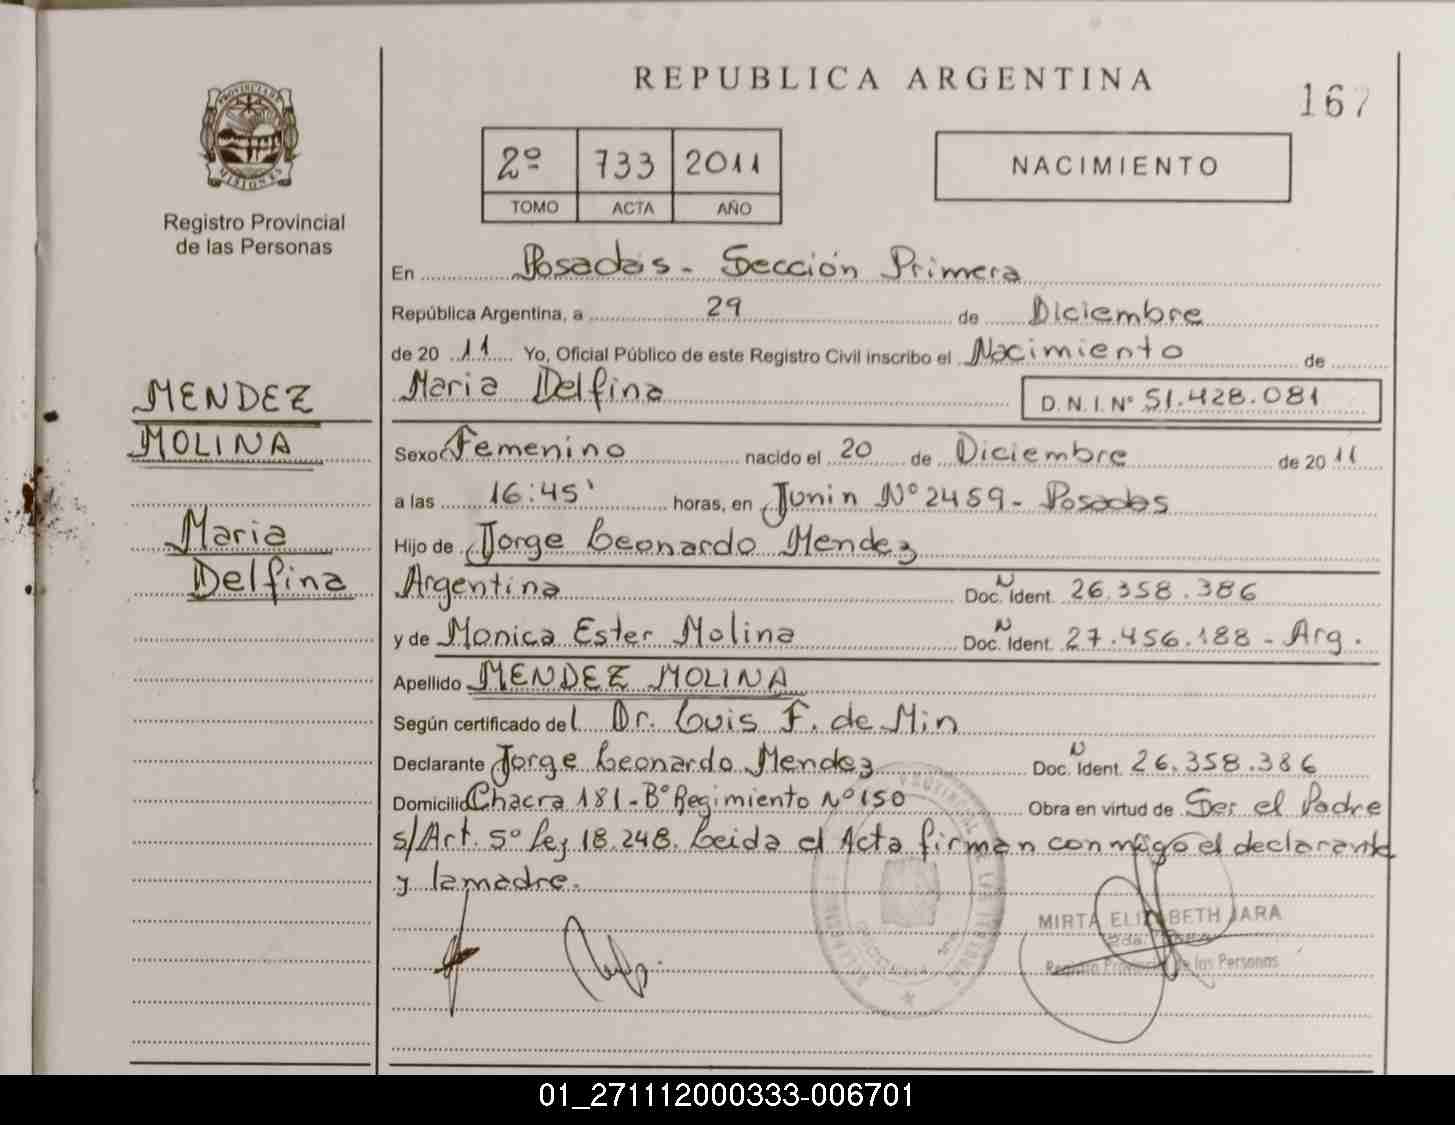 REPUBLICA ARGENTINA
167
PROVINCIA DE
MISIONES
Registro Provincial
de las Personas
2º 733 2011
TOMO ACTA AÑO
NACIMIENTO
En Posadas - Sección Primera
República Argentina, a 29 de Diciembre
de 20 11 Yo, Oficial Público de este Registro Civil inscribo el Nacimiento de
Maria Delfina D.N.I.Nº 51.428.081
MENDEZ
MOLINA
Maria
Delfina
Sexo Femenino nacido el 20 de Diciembre de 20 11
a las 16:45' horas, en Junin Nº 2459 - Posadas
Hijo de Jorge Leonardo Mendez
Argentina Doc. Ident. N 26.358.386
y de Monica Ester Molina Doc. Ident. N 27.456.188 - Arg.
Apellido MENDEZ MOLINA
Según certificado del Dr. Luis F. de Min
Declarante Jorge Leonardo Mendez Doc. Ident. N 26.358.386
Domicilio Chacra 181 - Bº Regimiento Nº 150 Obra en virtud de Ser el Padre
s/Art. 5º Ley 18.248. Leida el Acta firman conmigo el declarante
y la madre.
MIRTA ELIZABETH JARA
Registro Provincial de las Personas
01_271112000333-006701